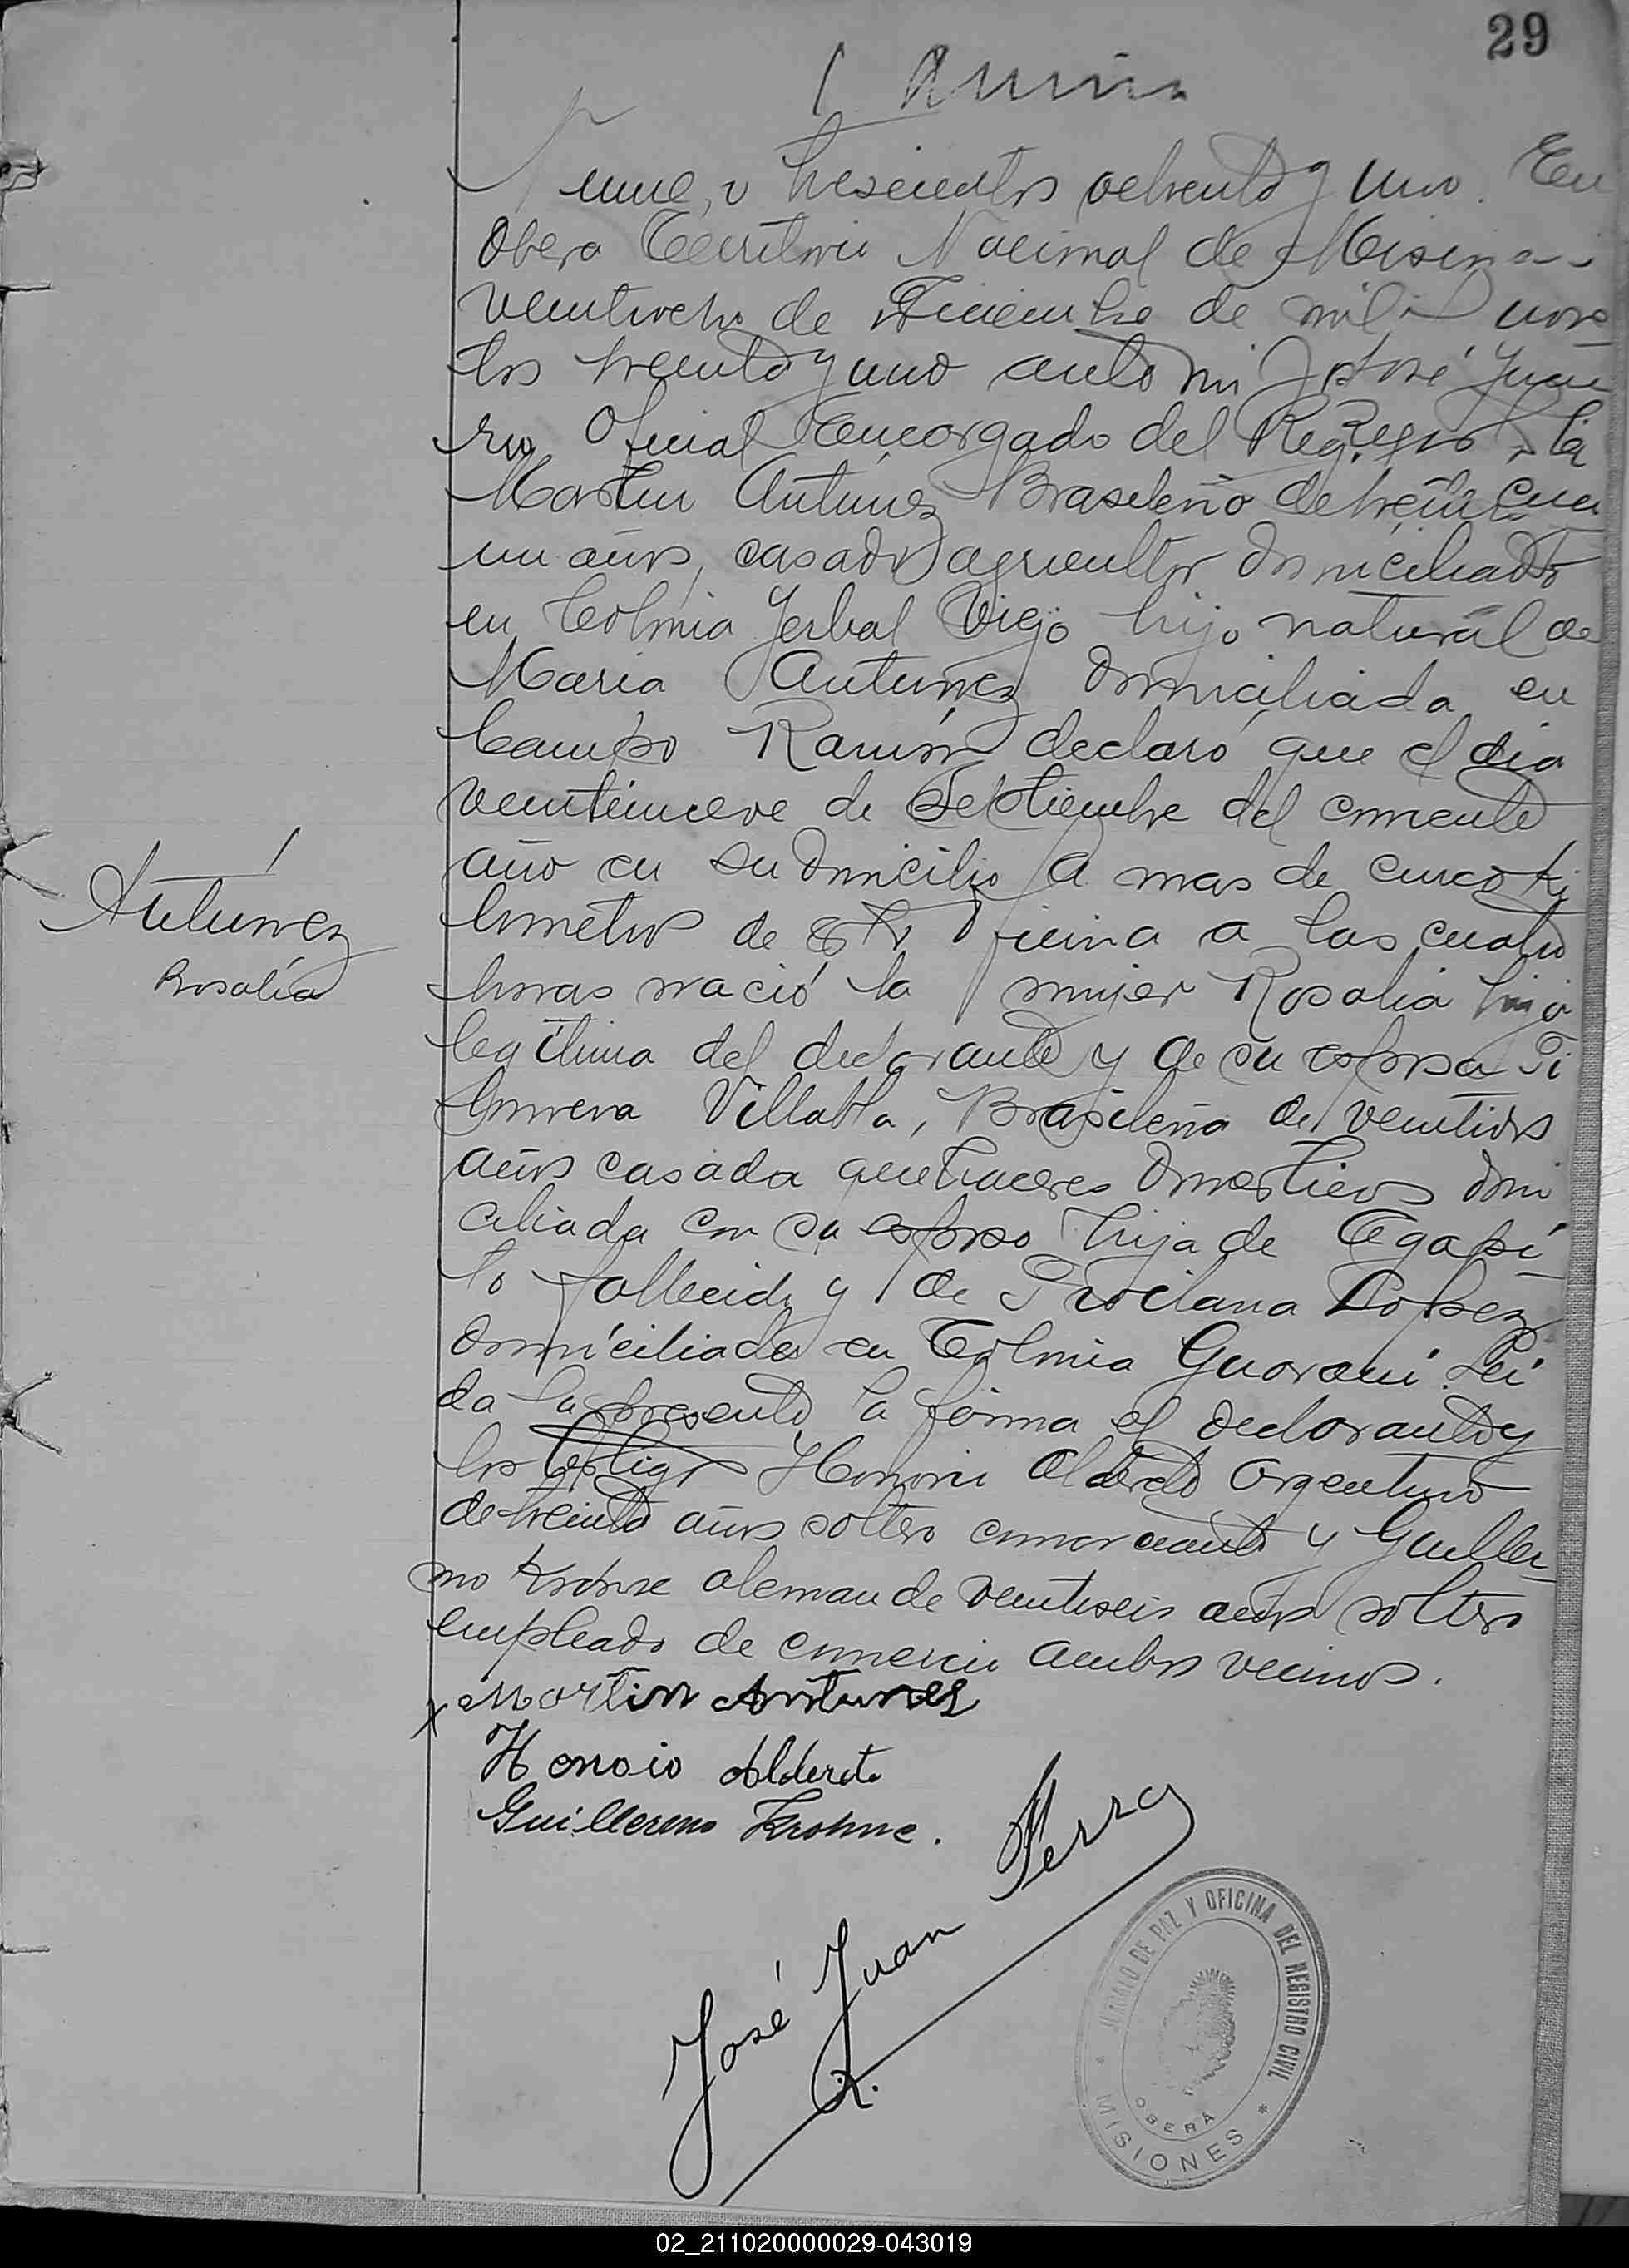 29
Número trescientos ochenta y uno. En
Obera Territorio Nacional de Misiones
veintiocho de Diciembre de mil nove
tos treinta y uno ante mi José Juan
Oficial Encargado del Registro
Martin Antúnez Brasileño de treinta
un años, casado agricultor domiciliado
en Colonia Yerbal Viejo hijo natural de
Maria Antunez domiciliada en
Campo Ramón declaró que el dia
veintinueve de Septiembre del corriente
año en su domicilio a mas de cinco ki
lometros de esta Oficina a las cuatro
horas nació la mujer Rosalia hija
legitima del declarante y de su esposa Fi
lomena Villalba, Brasileña de veintidos
años casada quehaceres domesticos domi
ciliada con su esposo hija de Egapi
to fallecido y de Lopez
domiciliada en Colonia Guarani. Lei
da la presente la firma el declarante y
los testigos Honorio Alderete Argentino
de treinta años soltero comerciante y Guiller
mo Krohne aleman de veintiseis años soltero
empleado de comercio ambos vecinos.
Antúnez
Rosalía
x Martin Antunez
Honorio Alderete
Guillermo Krohne.
José Juan Ferro
JUZGADO DE PAZ Y OFICINA DEL REGISTRO CIVIL
OBERÁ
* MISIONES *
02_211020000029-043019